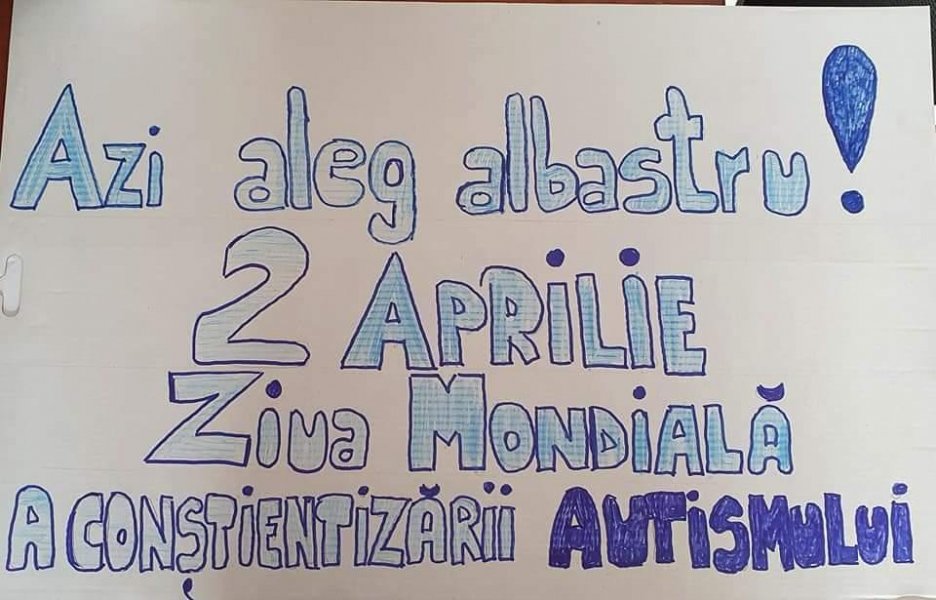 Azi aleg albastru!
2 APRILIE
Ziua MONDIALĂ
A CONȘTIENTIZĂRII AUTISMULUI